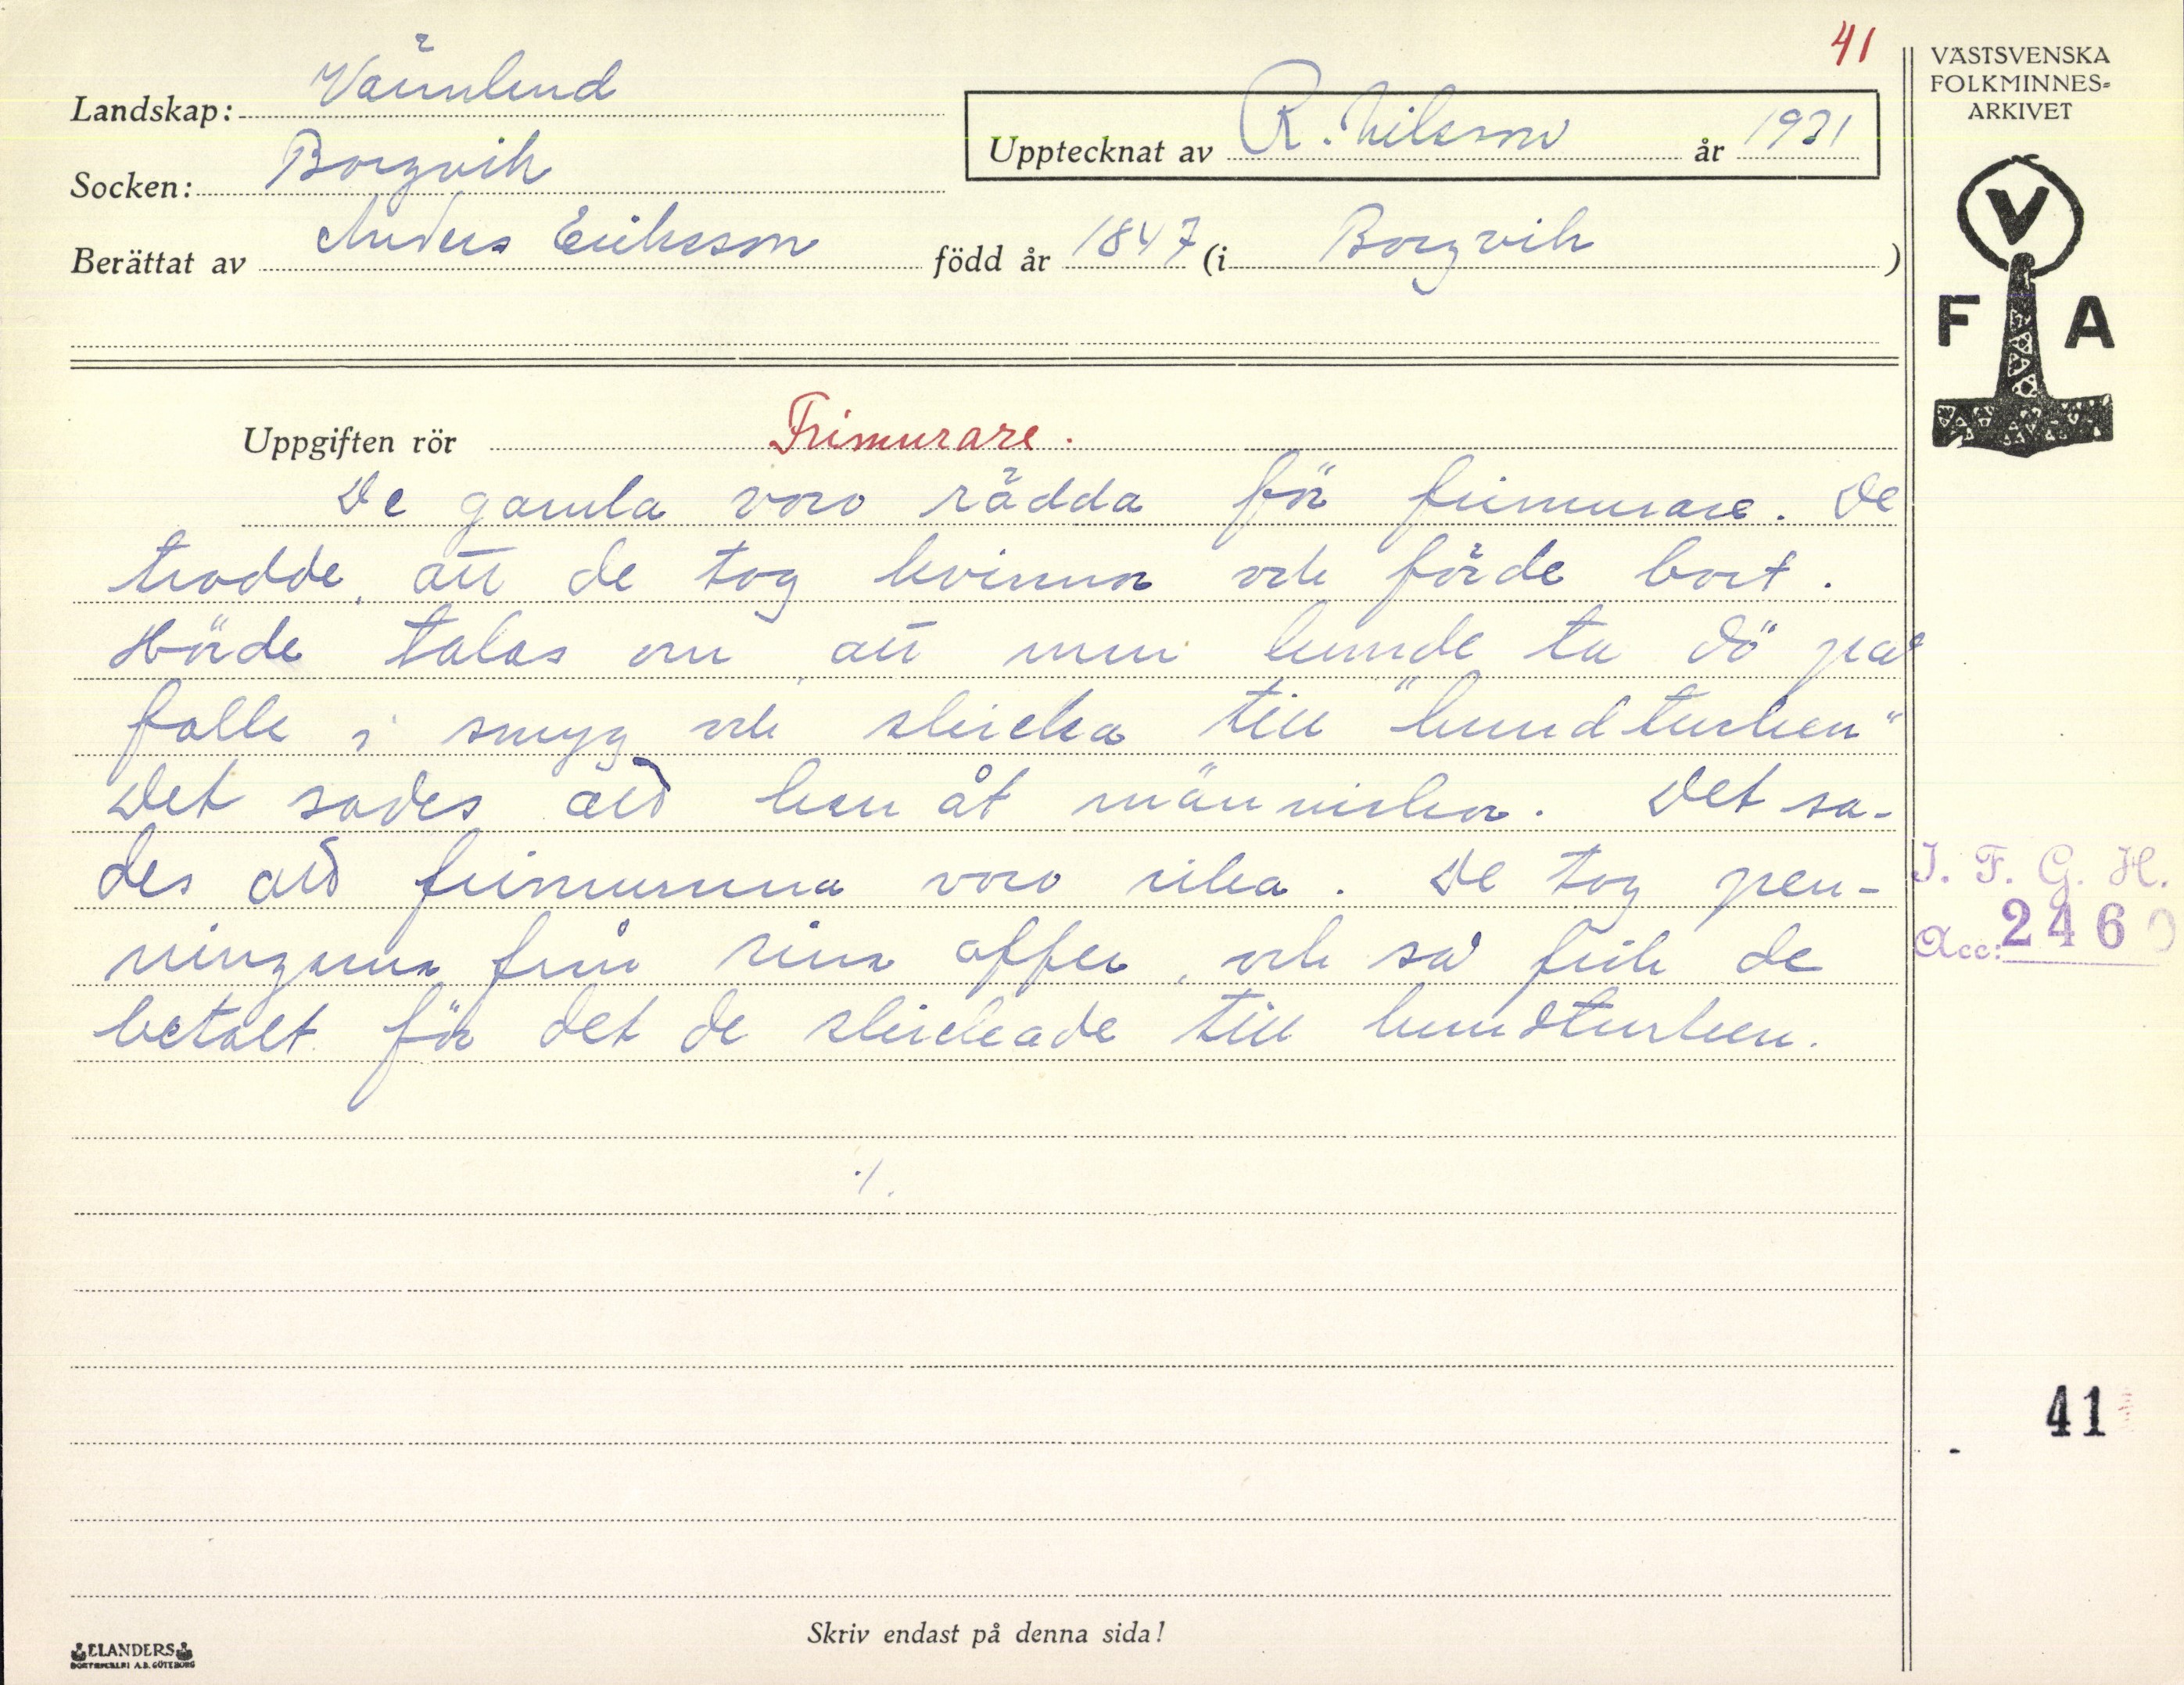 41
Landskap: Värmland
Socken: Borgvik
Upptecknat av R. Nilsson år 1931
Berättat av Anders Eriksson född år 1847 (i Borgvik)
VÄSTSVENSKA
FOLKMINNES-
ARKIVET
V
F A
Uppgiften rör Frimurare.
De gamla voro rädda för frimurare. De
trodde, att de tog kvinnor och förde bort.
Hörde talas om, att man kunde ta dö på
folk i smyg och skicka till "hundturken"
Det sades att han åt människor. Det sa-
des att frimurarna voro rika. De tog pen-
ningarna från sina offer, och så fick de
betalt för det de skickade till hundturken.
./.
I. F. G. H.
Acc: 2460
41
Skriv endast på denna sida!
ELANDERS
BOKTRYCKERI A.B. GÖTEBORG